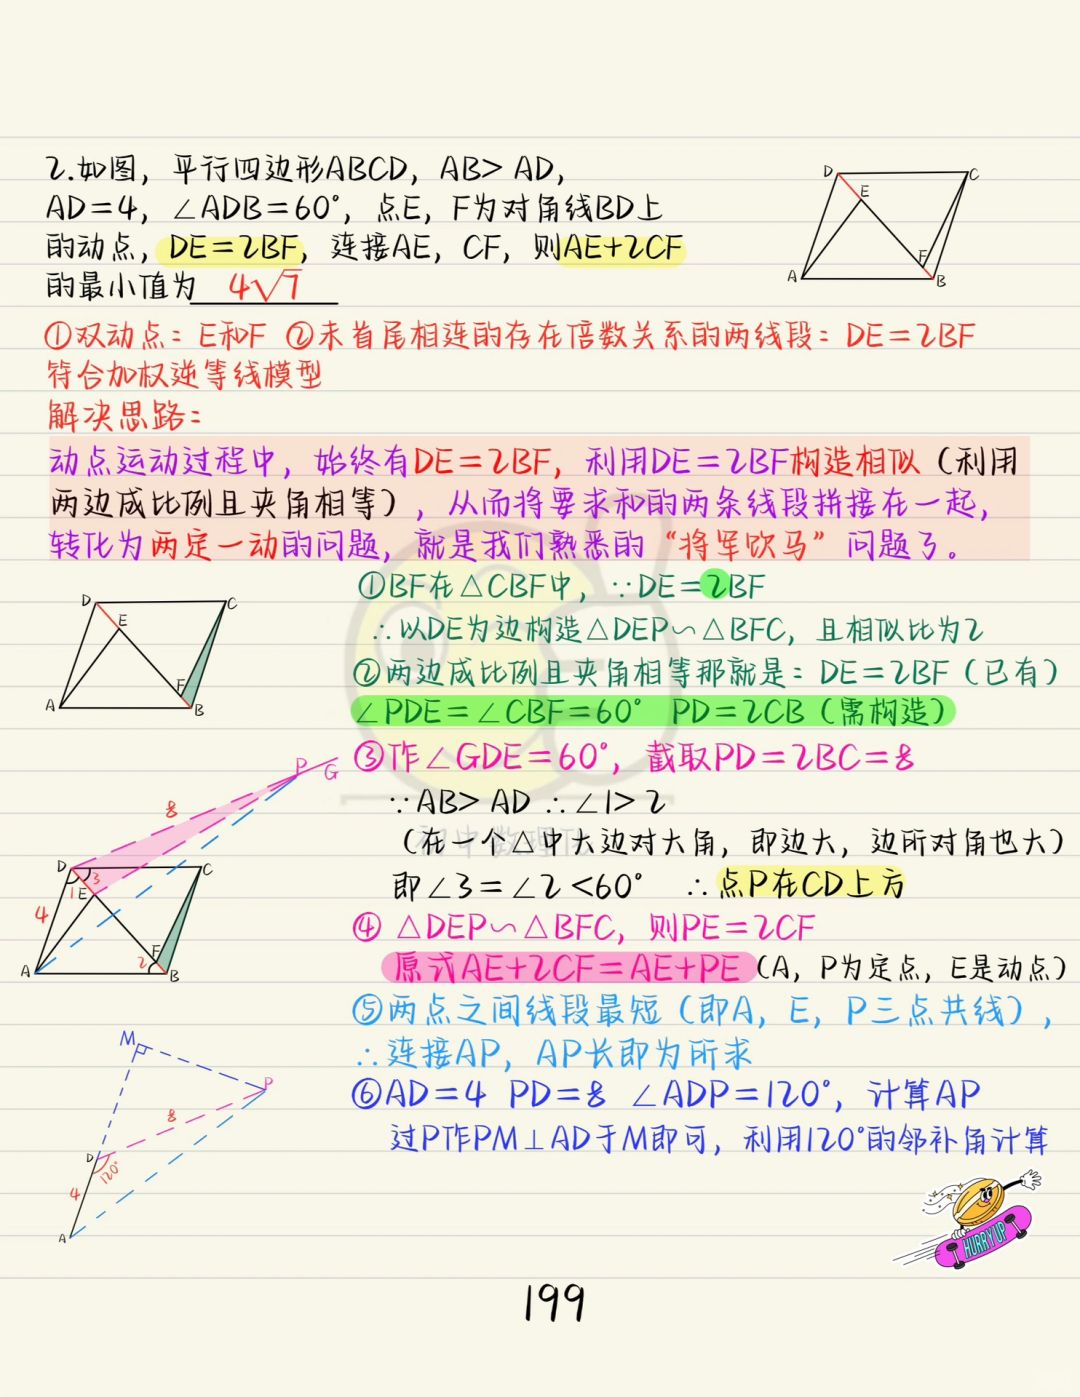 2.如图，平行四边形ABCD，AB＞AD，
AD=4，∠ADB=60°，点E，F为对角线BD上
的动点，DE=2BF，连接AE，CF，则AE+2CF
的最小值为 4√7
D
C
E
F
A
B
①双动点：E和F ②未首尾相连的存在倍数关系的两线段：DE=2BF
符合加权逆等线模型
解决思路：
动点运动过程中，始终有DE=2BF，利用DE=2BF构造相似（利用
两边成比例且夹角相等），从而将要求和的两条线段拼接在一起，
转化为两定一动的问题，就是我们熟悉的“将军饮马”问题了。
①BF在△CBF中，∵DE=2BF
∴以DE为边构造△DEP∽△BFC，且相似比为2
②两边成比例且夹角相等那就是：DE=2BF（已有）
∠PDE=∠CBF=60° PD=2CB（需构造）
D
C
E
F
A
B
③作∠GDE=60°，截取PD=2BC=8
∵AB＞AD ∴∠1＞2
（在一个△中大边对大角，即边大，边所对角也大）
即∠3=∠2＜60° ∴点P在CD上方
④ △DEP∽△BFC，则PE=2CF
原式AE+2CF=AE+PE（A，P为定点，E是动点）
P G
8
D
C
1
3
E
4
F
2
A
B
⑤两点之间线段最短（即A，E，P三点共线），
∴连接AP，AP长即为所求
⑥AD=4 PD=8 ∠ADP=120°，计算AP
过P作PM⊥AD于M即可，利用120°的邻补角计算
M
P
8
D
120°
4
A
HURRY UP
初中数理化
199